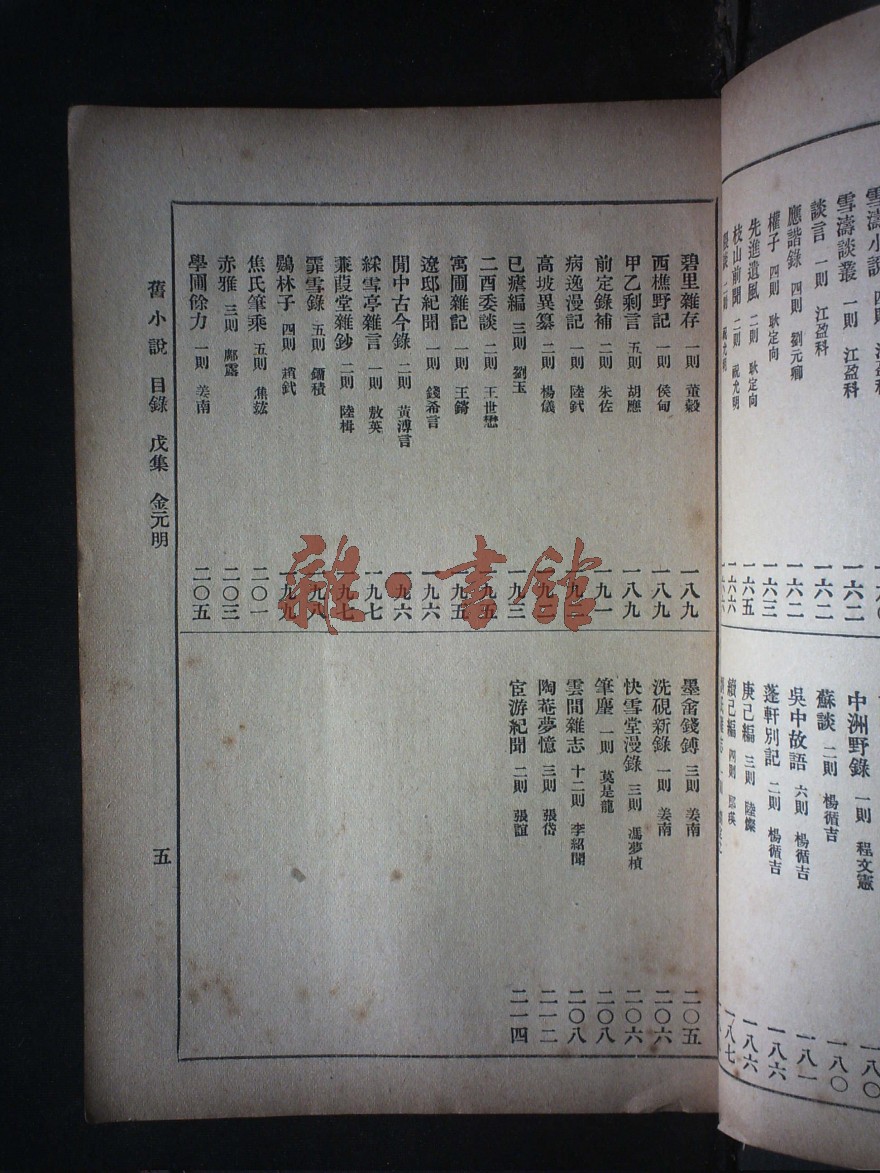 雪濤談叢 一則 江盈科 一六二
談言 一則 江盈科 一六二
應諧錄 四則 劉元卿 一六二
權子 四則 耿定向 一六三
先進遺風 二則 耿定向 一六五
枝山前聞 二則 祝允明 一六六
中洲野錄 一則 程文憲 一八〇
蘇談 二則 楊循吉 一八〇
吳中故語 六則 楊循吉 一八一
蓬軒別記 二則 楊循吉 一八六
庚己編 三則 陸燦 一八六
續己編 四則 郎瑛 一八七
碧里雜存 一則 董穀 一八九
西樵野記 一則 侯甸 一八九
甲乙剩言 五則 胡應 一八九
前定錄補 二則 朱佐 一九一
病逸漫記 一則 陸釴
高坡異纂 二則 楊儀
巳瘧編 三則 劉玉 一九三
二酉委談 二則 王世懋
寓圃雜記 一則 王錡
遼邸紀聞 一則 錢希言 一九六
閒中古今錄 二則 黃溥言 一九六
綵雪亭雜言 一則 敖英 一九七
蒹葭堂雜鈔 二則 陸楫 一九七
霏雪錄 五則 鎦積 一九八
鸚林子 四則 趙釴 一九九
焦氏筆乘 五則 焦竑 二〇一
赤雅 三則 鄺露 二〇三
學圃餘力 一則 姜南 二〇五
墨畬錢鎛 三則 姜南 二〇五
洗硯新錄 一則 姜南 二〇六
快雪堂漫錄 三則 馮夢楨 二〇六
筆麈 一則 莫是龍 二〇八
雲間雜志 十二則 李紹聞 二〇八
陶菴夢憶 三則 張岱 二一二
宦游紀聞 二則 張誼 二一四
舊小說 目錄 戊集 金元明 五
雜·書館